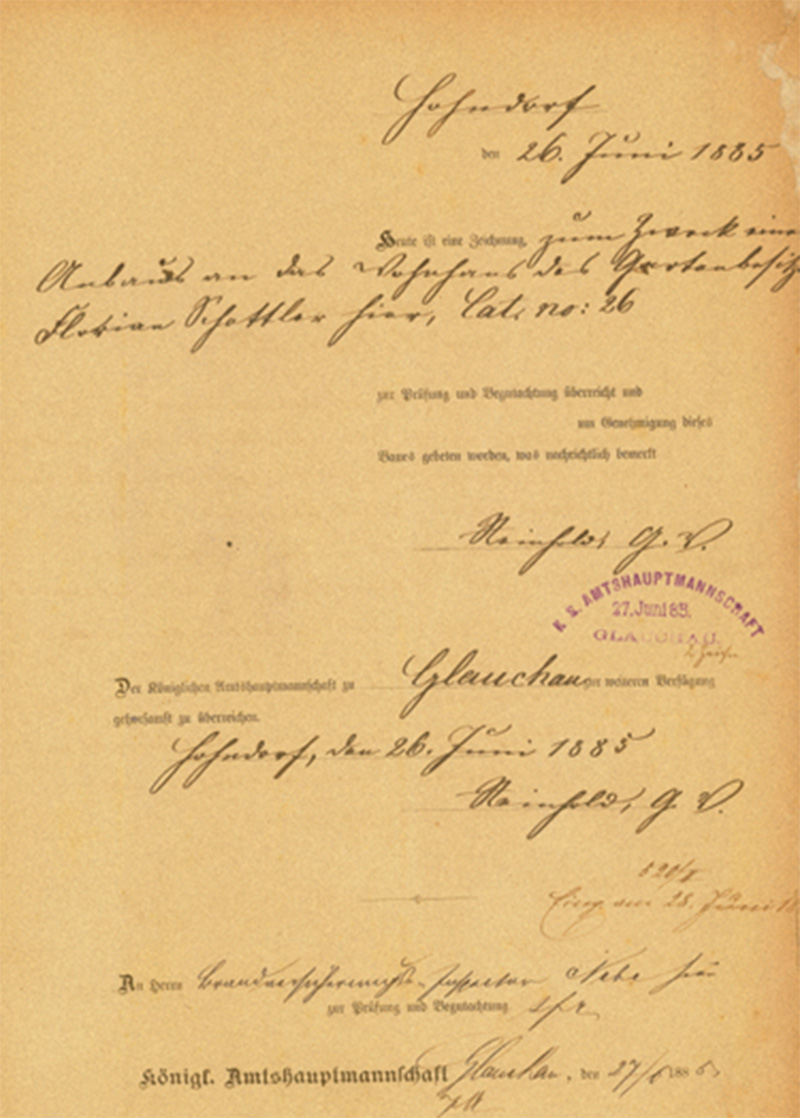 Hohndorf
den 26. Juni 1885
Heute ist eine Zeichnung, zum Zweck eines
Anbaus an das Wohnhaus des Gartenbesitz
Florian Schettler hier, Cat. no: 26
zur Prüfung und Begutachtung überreicht und
um Genehmigung dieses
Baues gebeten worden, was nachrichtlich bemerkt
Reinhold, G. V.
K. S. AMTSHAUPTMANNSCHAFT
27. Juni 85.
GLAUCHAU.
Der Königlichen Amtshauptmannschaft zu Glauchau zur weiteren Verfügung
gehorsamst zu überreichen.
Hohndorf, den 26. Juni 1885
Reinhold, G. V.
Eing. am 28. Juni 18
An Herrn Brandversicherungs-Inspector hier
zur Prüfung und Begutachtung
Königl. Amtshauptmannschaft Glauchau, den 27/6 1885